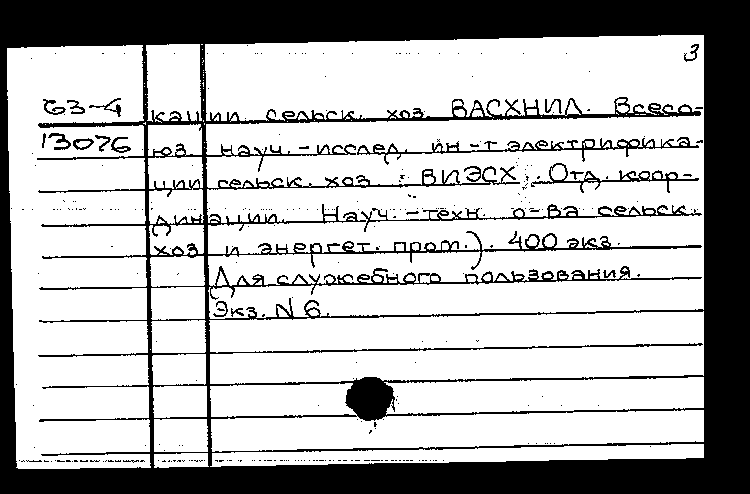 3
63-4 кации сельск. хоз. ВАСХНИЛ. Всесо-
13076 юз. науч.-исслед. ин-т электрифика-
ции сельск. хоз. ВИЭСХ. Отд. коор-
динации. Науч.-техн. о-ва сельск.
хоз и энергет. пром.). 400 экз.
Для служебного пользования.
Экз. N 6.